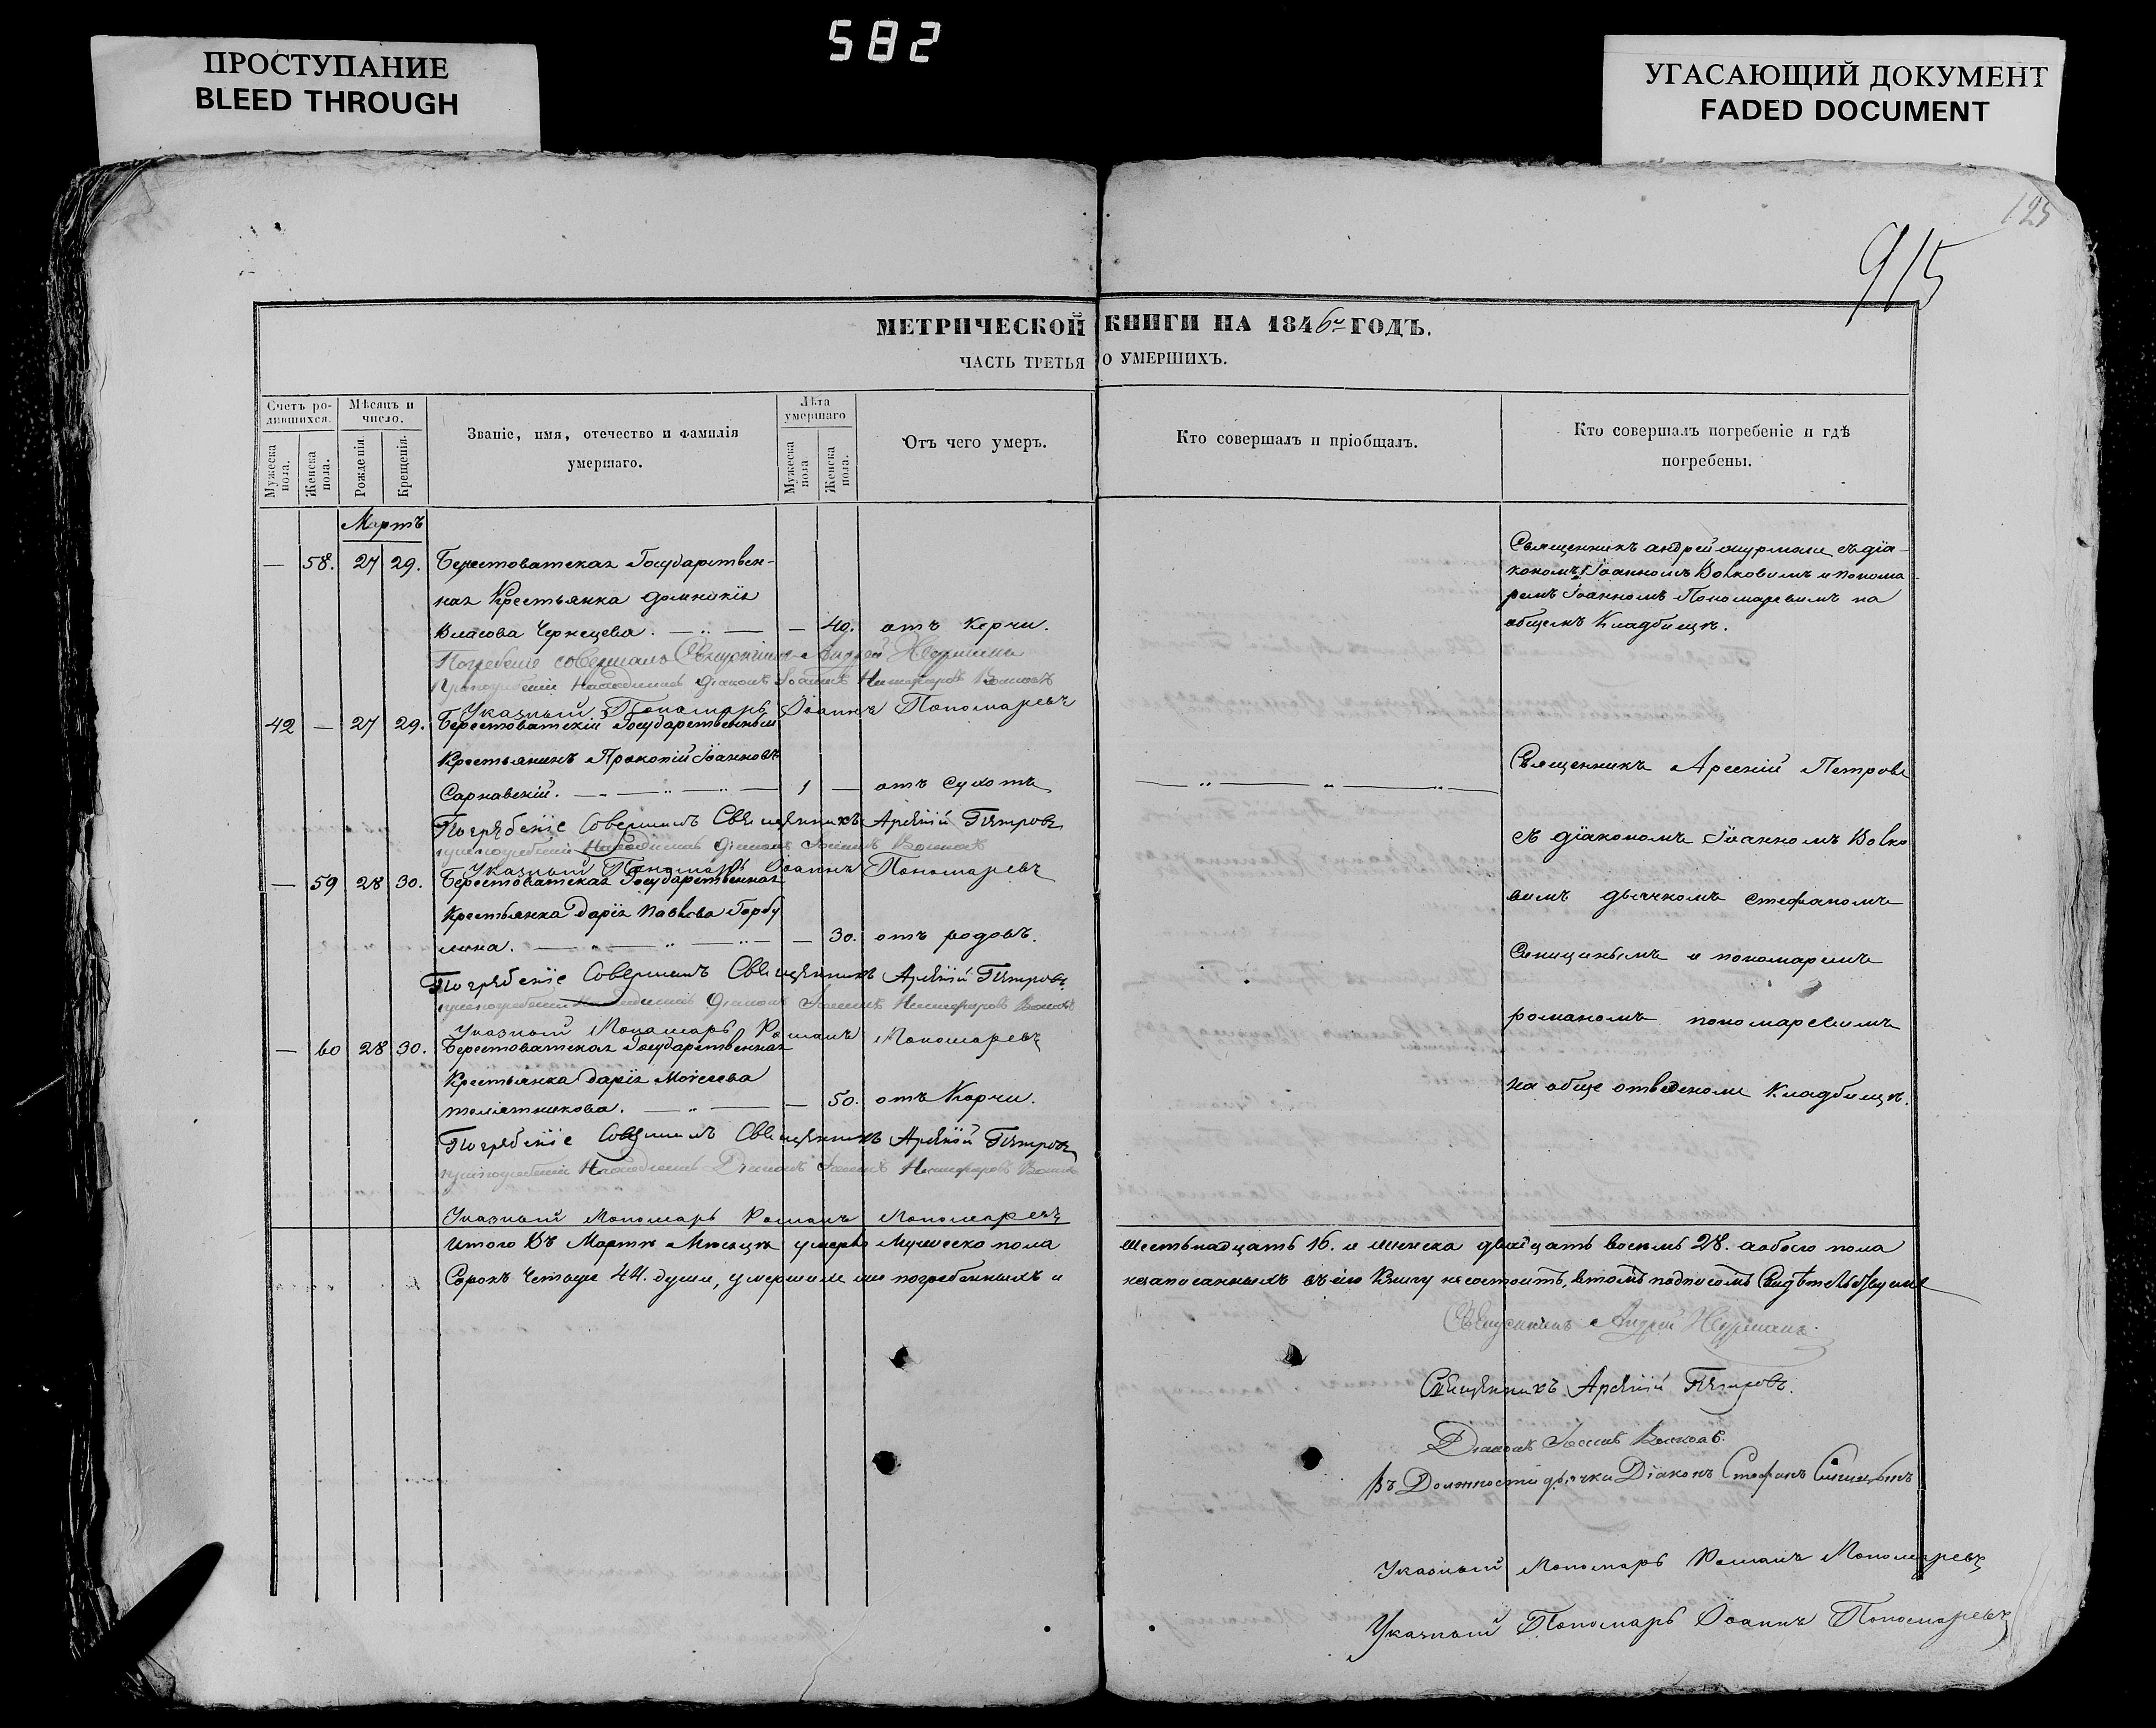 582
ПРОСТУПАНИЕ
BLEED THROUGH
УГАСАЮЩИЙ ДОКУМЕНТ
FADED DOCUMENT
125
915
МЕТРИЧЕСКОЙ КНИГИ НА 1846й ГОДЪ.
ЧАСТЬ ТРЕТЬЯ О УМЕРШИХЪ.
Счетъ родившихся.
Мужеска пола.
Женска пола.
Мѣсяцъ и число.
Рожденія.
Крещенія.
Званіе, имя, отечество и фамилія
умершаго.
Лѣта умершаго
Мужеска пола
Женска пола.
Отъ чего умеръ.
Кто совершалъ и пріобщалъ.
Кто совершалъ погребеніе и гдѣ
погребены.
Мартъ
— 58. 27 29. Берестоватская Государствен-
ная Крестьянка Домникія
Власова Чернецева. — — 40. отъ Корчи.
Погребеніе совершалъ Священникъ Андрей
Діаконъ Іоаннъ Никифоровъ Волковъ
Указный Пономарь Іоаннъ Пономаревъ
42 — 27 29. Берестоватскій Государственный
Крестьянинъ Прокопій Іоанновъ
Сарнавскій. — 1 — отъ сухотъ
Погребеніе Совершилъ Священникъ Арсеній Петровъ
Діаконъ Іоаннъ Волковъ
Указный Пономарь Іоаннъ Пономаревъ
— 59 28 30. Берестоватская Государственная
Крестьянка Дарія Павлова Горбу
лина. — — 30. отъ родовъ.
Погребеніе Совершилъ Священникъ Арсеній Петровъ
Діаконъ Іоаннъ Никифоровъ Волковъ
Указный Пономарь Романъ Пономаревъ
— 60 28 30. Берестоватская Государственная
Крестьянка Дарія Моѵсеева
телятникова. — — 50. отъ Корчи.
Погребеніе Совершилъ Священникъ Арсеній Петровъ
Діаконъ Іоаннъ Никифоровъ
Указный Пономарь Романъ Пономаревъ
Священникъ андрей съ діа-
кономъ Іоанномъ Волковымъ и понома
ремъ Іоанномъ Пономаревымъ на
общемъ Кладбищѣ.
Священникъ Арсеній Петровъ
съ діакономъ Іоанномъ Волко
вымъ дьячкомъ стефаномъ
Синицинымъ и пономаремъ
романомъ пономаревымъ
на обще отведеномъ Кладбищѣ.
Итого Въ Мартѣ Мѣсяцѣ умерло Мужеско пола шестьнадцать 16. и женска двадцать восемь 28. аобоего пола
Сорокъ Четыре 44. души, умершихъ но погребенныхъ и незаписанныхъ въ сію Книгу несостоитъ, втомъ подписомъ Свидѣтельствуемъ
Священникъ Андрей
Священникъ Арсеній Петровъ.
Діаконъ Іоаннъ Волковъ.
Въ Должности дьячка Діаконъ Стефанъ Синицынъ
Указный Пономарь Романъ Пономаревъ
Указный Пономарь Іоаннъ Пономаревъ